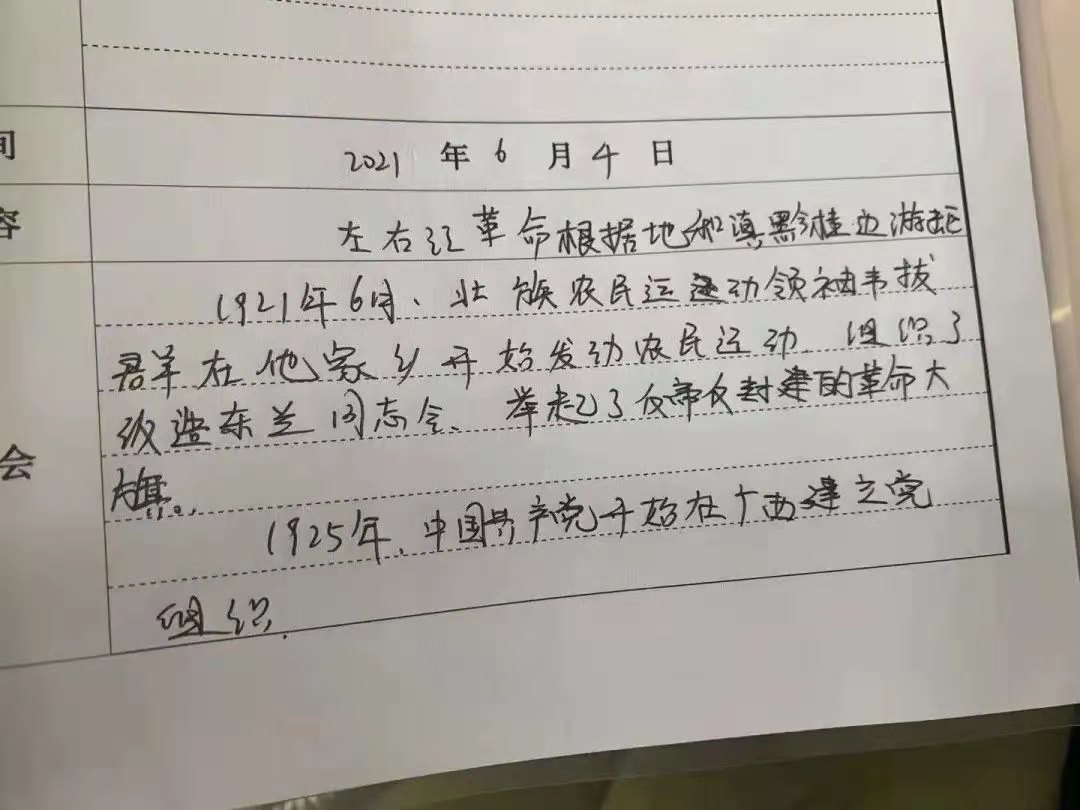 间
2021 年 6 月 4 日
容
左右江革命根据地和滇黔桂边游击区
1921年6月、壮族农民运动领袖韦拔
群在他家乡开始发动农民运动、组织了
改造东兰同志会、举起了反帝反封建的革命大
旗。
会
1925年、中国共产党开始在广西建立党
组织.